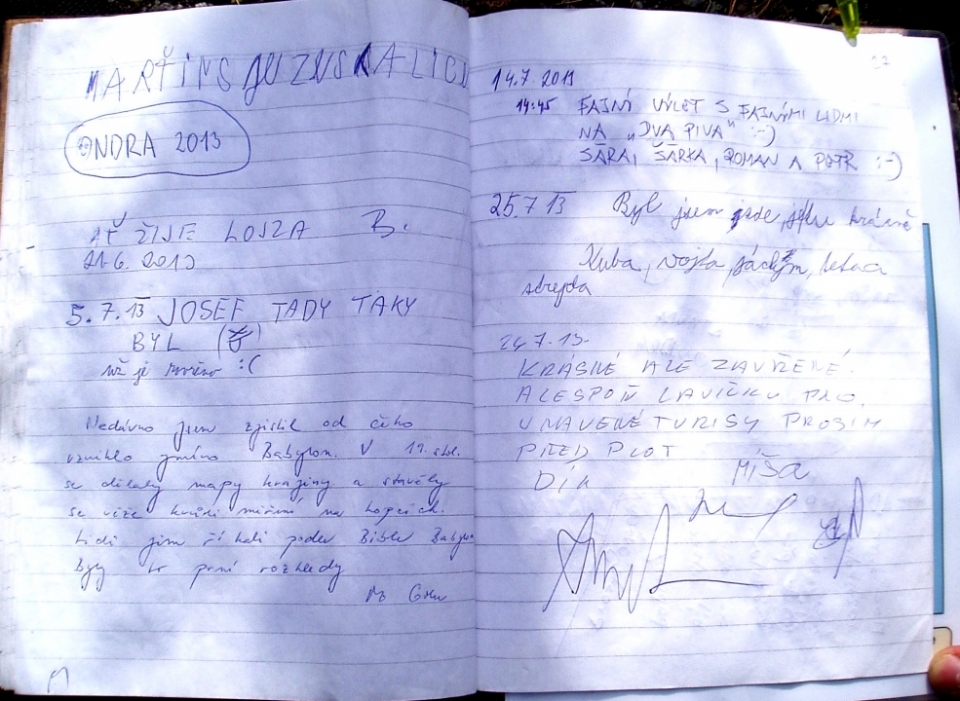 ONDRA 2013
AŤ ŽIJE LOJZA B.
21.6. 2013
5.7.13 JOSEF TADY TAKY
BYL
už je :(
Nedávno jsem zjistil od čeho
vzniklo jméno Babylon. V 19. stol.
se dělaly mapy krajiny a stavěly
se věže kvůli měření na kopcích.
Lidi jim říkali podle Bible Babylon
Byly to první rozhledy
14.7. 2013
14:45 FAJNÝ VÝLET S FAJNÝMI LIDMI
NA „DVA PIVA" :-)
ŠÁRA, ŠÁRKA, ROMAN A PETR :-)
25.7 13 Byl jsem zde, je krásně
Kuba, Vojta, Jáchym, teta a
strejda
26.7.13.
KRÁSNÉ ALE ZAVŘENÉ.
ALESPOŇ LAVIČKU PRO
UNAVENÉ TURISY PROSIM
PŘED PLOT
DÍK MÍŠA